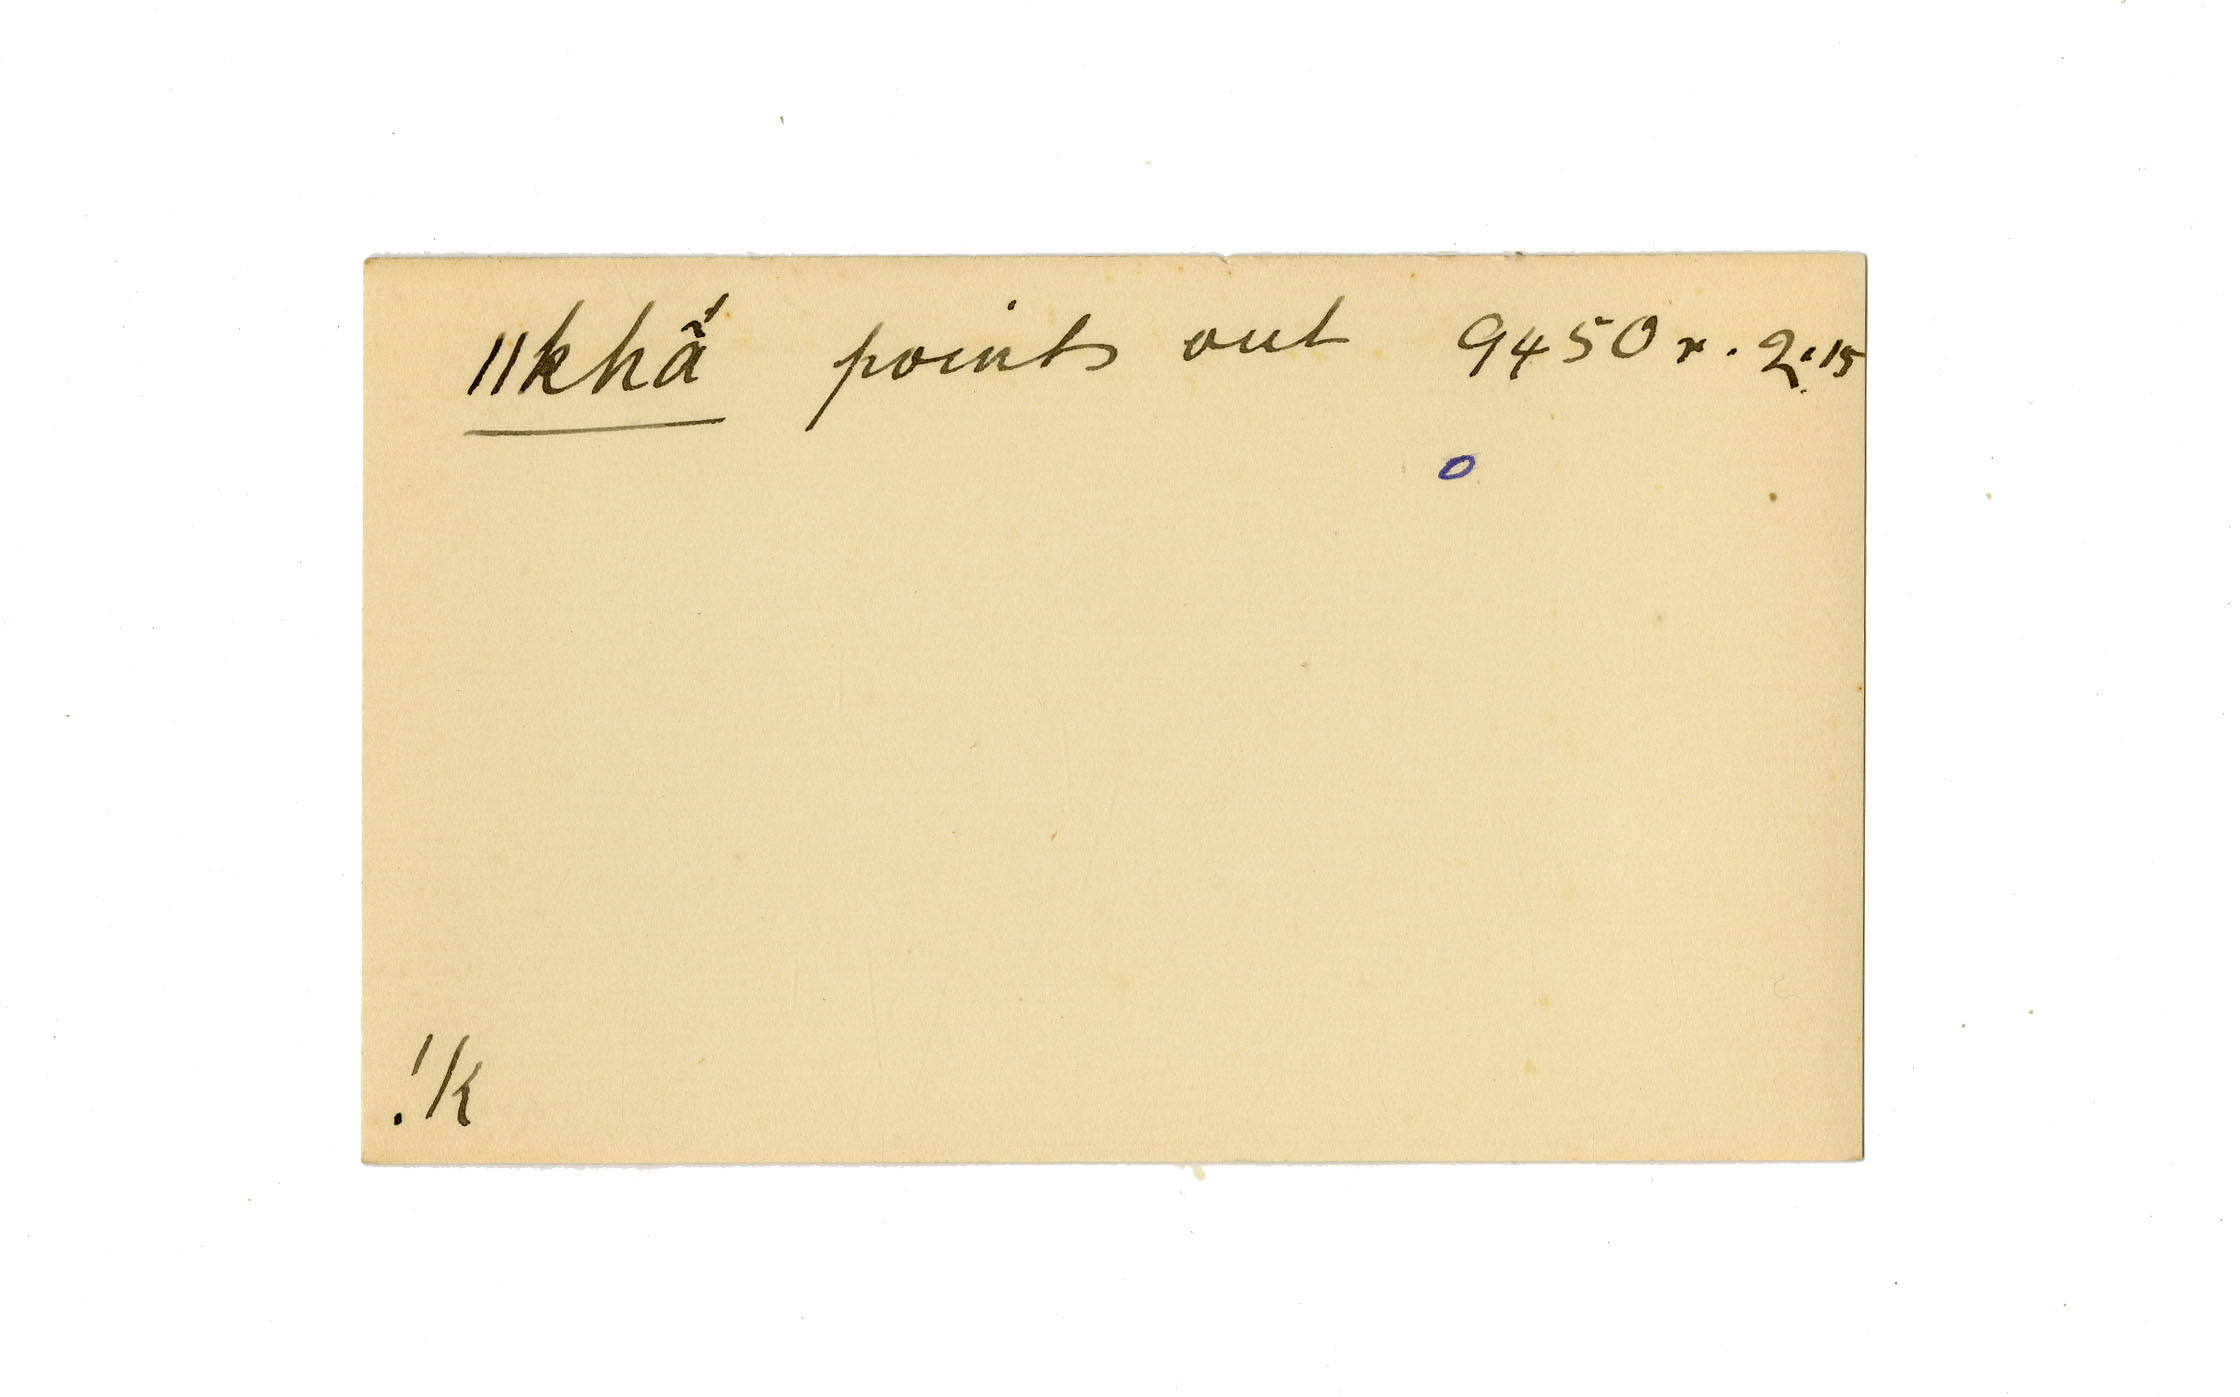 ǁkhā̃́ points out 9450 r. 2:15
o
!k